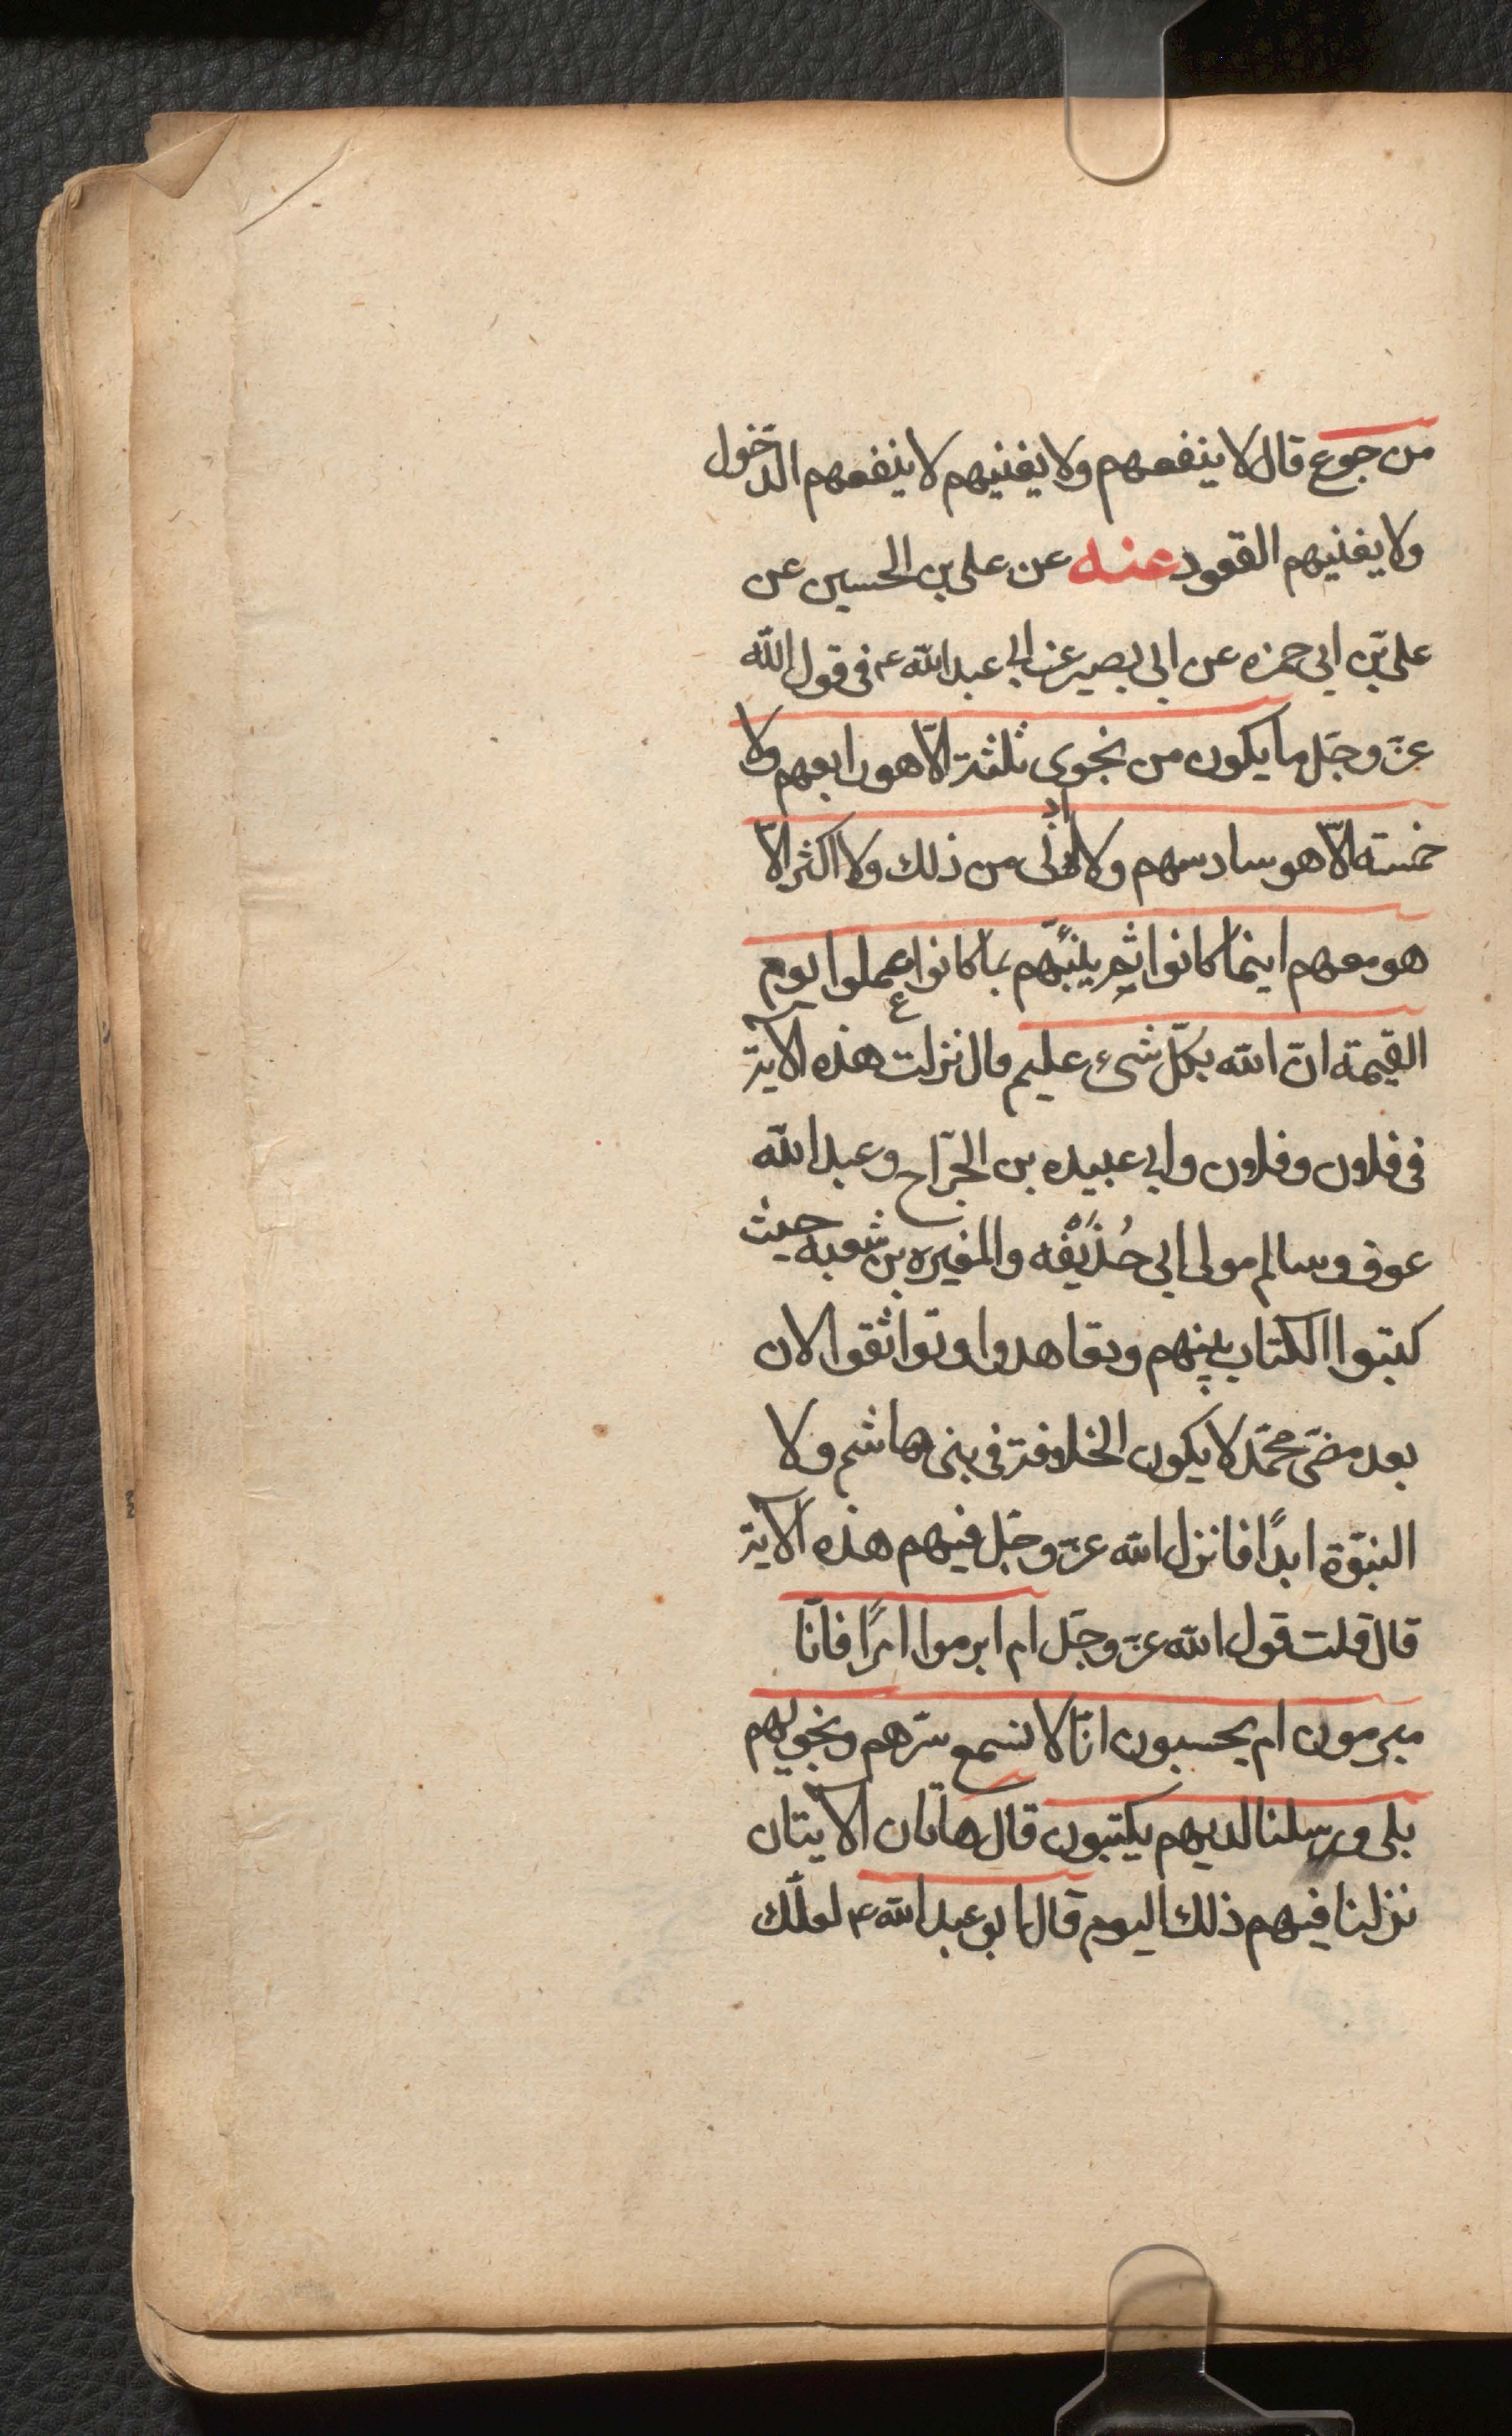 من جوع قال لا ينفعهم ولا يغنيهم لا ينفعهم الدّخول
ولا يغنيهم القعود عنه عن على بن الحسين عن
على بن ابى حمزه عن ابى بصير عن ابى عبد الله ع فى قول الله
عزّ وجّل ما يكون من نجوى ثلثة الّا هو رابعهم ولا
خمسته الّا هو سادسهم ولا ادنى من ذلك ولا اكثر الّا
هو معهم اينما كانوا ثم ينبئهم بما كانوا عملوا يوم
القيمة انّ الله بكلّ شىء عليم قال نزلت هذه الآية
فى فلان وفلان وابى عبيده بن الجرّاح وعبد الله
عوف وسالم مولى ابى حُذَيْفَه والمغيره بن شعبه حيث
كتبوا الكتاب بينهم وتعاهدوا وتواثقوا الان
بعد مضى محمّد لا يكون الخلافة فى بنى هاشم ولا
النبّوة ابدًا فانزل الله عزّ وجّل فيهم هذه الآية
قال قلت قول الله عزّ وجّل ام ابرموا امرًا فانّا
مبرمون ام يحسبون انّا لا نسمع سّرهم ونجويهم
بلى ورسلنا لديهم يكتبون قال هاتان الآيتان
نزلنا فيهم ذلك اليوم قال ابو عبد الله ع لعلّك